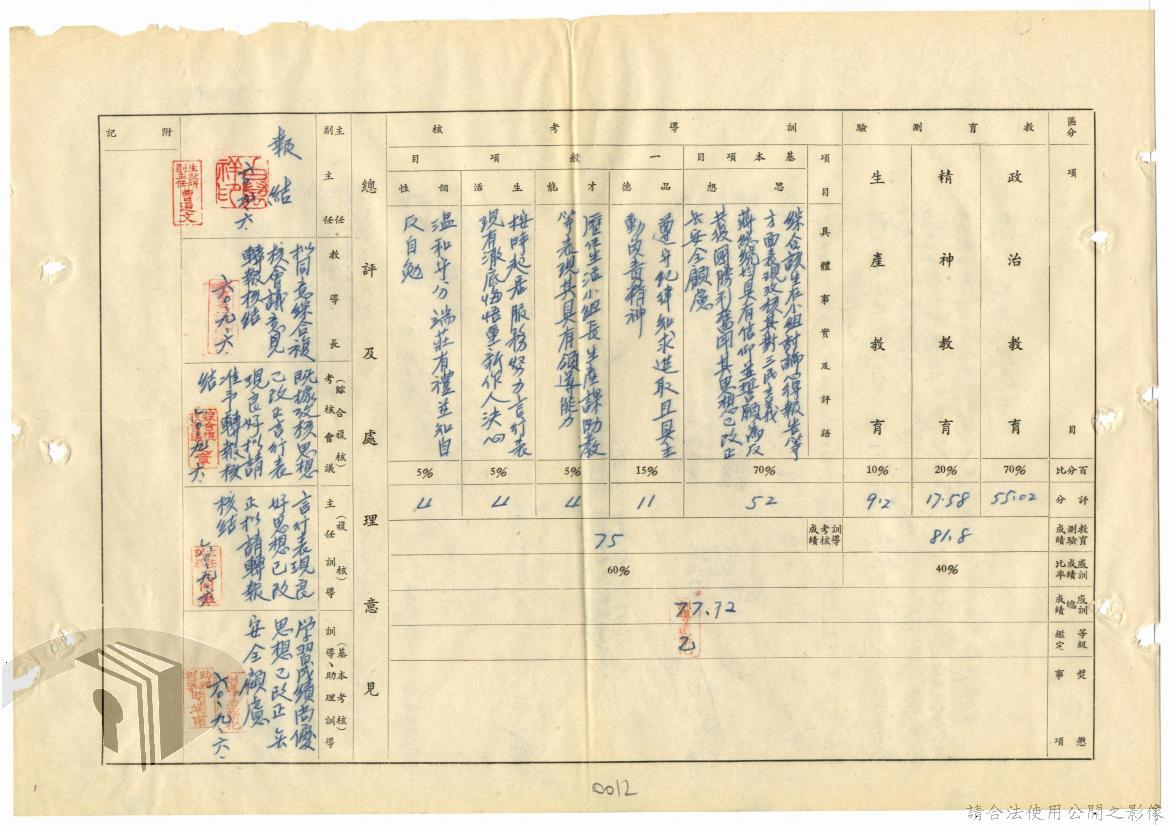 區分
項目
教育測驗
政治教育
精神教育
生產教育
訓導考核
項目
具體事實及評語
基本項目
思想
綜合該生在小組討論心得報告等
方面表現攷核其對三民主義
蔣總統均具有信仰並誓願為反
共復國勝利奮鬥其思想已改正
無安全顧慮
一般項目
品德
遵守紀律知求進取且具主
動負責精神
才能
歷任生活小組長生產課助教
等表現其具有領導能力
生活
按時起居服務努力言行表
現有澈底悔悟重新作人決心
個性
溫和守分端莊有禮並知自
反自勉
百分比
70%
20%
10%
70%
15%
5%
5%
5%
評分
55.02
17.58
9.2
52
11
4
4
4
教育測驗成績
81.8
訓導考核成績
75
感訓成績比率
40%
60%
感訓總成績
77.72
等級鑑定
乙
獎懲事項
總評及處理意見
(基本考核)
訓導、助理訓導
学習成績尚優
思想已改正無
安全顧慮
六〇、九、六、
(複核)
主任訓導
言行表現良
好思想已改
正擬請轉報
核結
六〇、九、六
(綜合複核)
考核會議
既據攷核思想
已改正言行表
現良好擬請
准予轉報核
結
六〇、九、六、
教導長
擬同意綜合複
核會議意見
轉報核結
六〇、九、六、
主任
副主任
報結
六、九、六
生教所
副主任
曹週文
附記
0012
請合法使用公開之影像